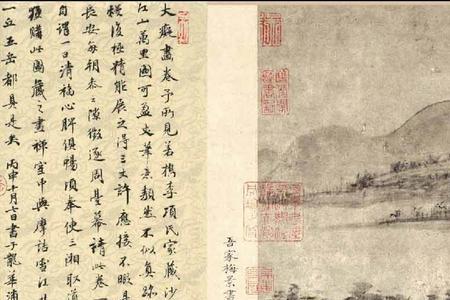 吾家梅景書
大癡畫卷予所見若檇李項氏家藏沙
江山萬里圖可盈丈筆意頹然不似真跡
復極精能展之得三丈許應接不暇是
長安每朝參之隙徵逐周臺幕請此卷一
自謂一日清福心脾俱暢頃奉使三湘取道
獲購此圖藏之畫禪室中與摩詰雪江
一丘五岳都具是矣丙申十月七日書于龍華浦